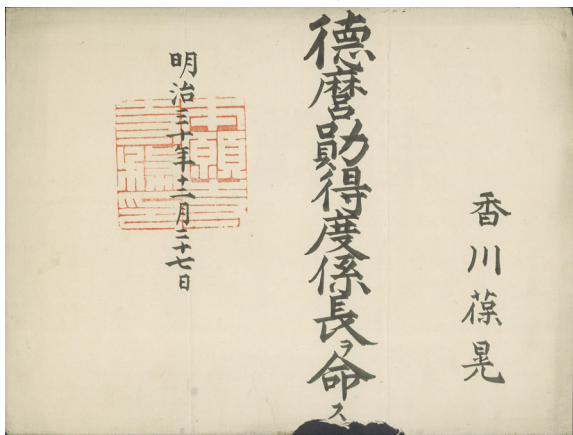 香川葆晃
德麿勛得度係長ヲ命ス
明治三十年十二月二十七日